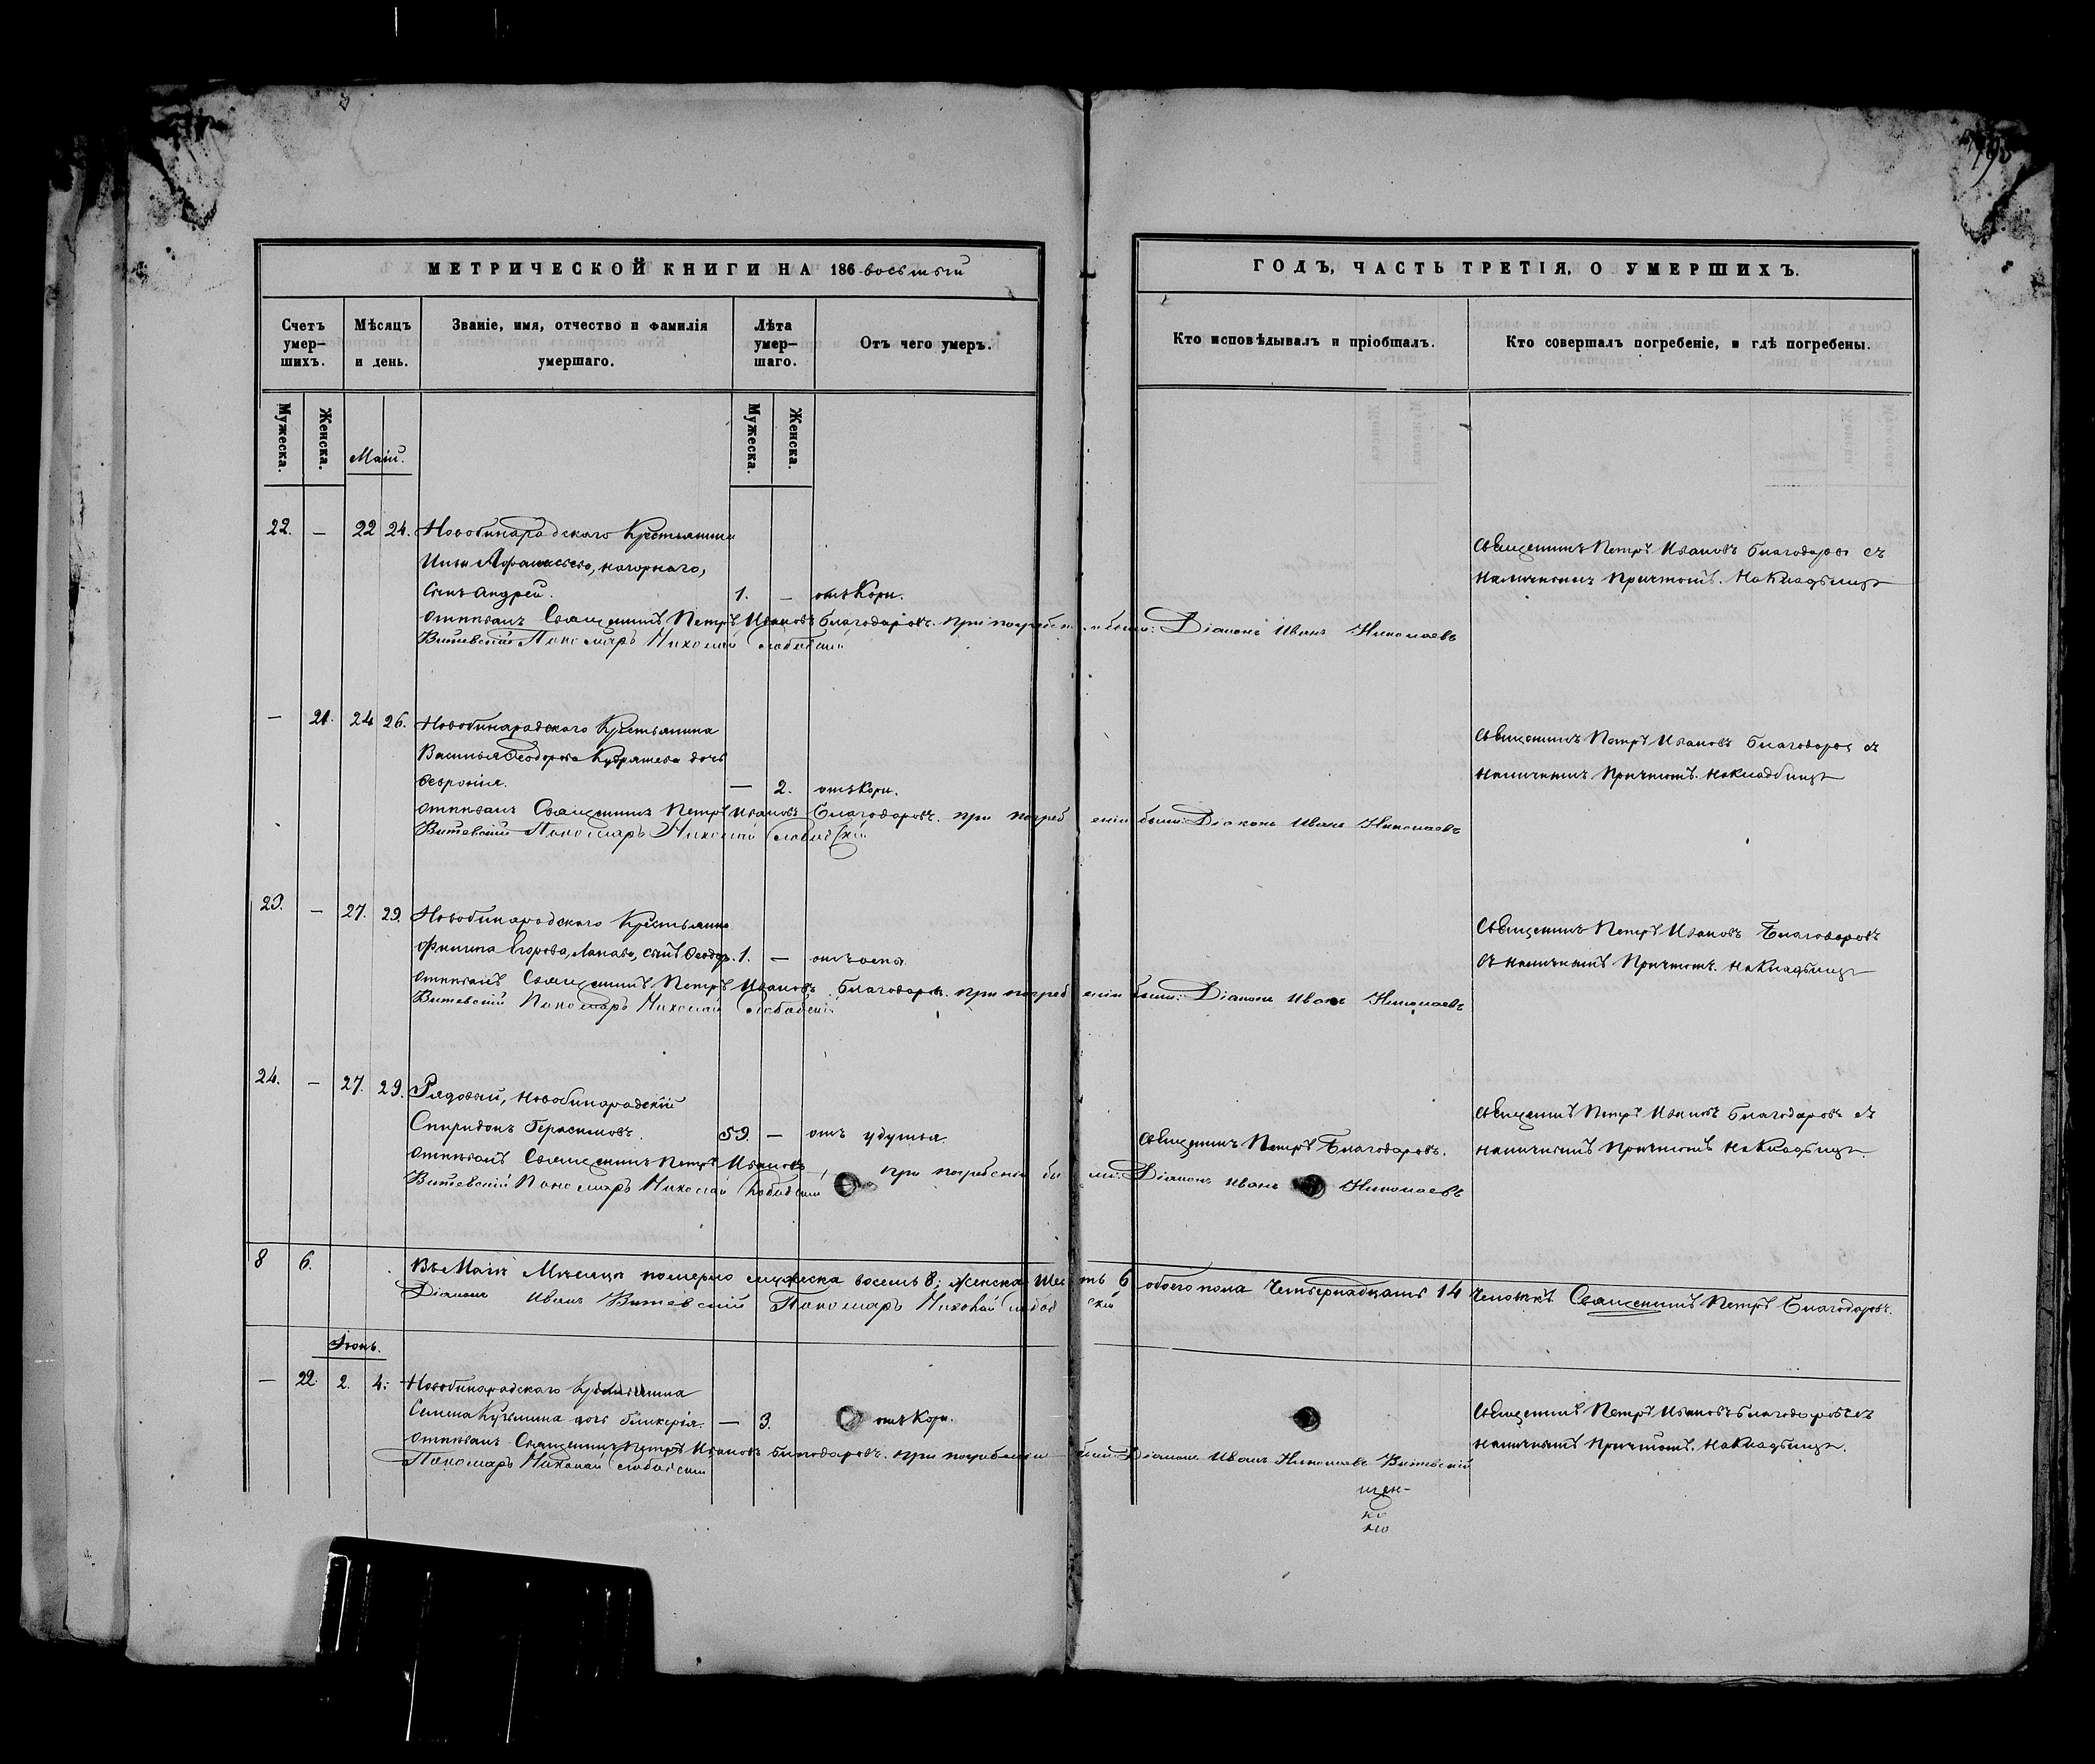 195
МЕТРИЧЕСКОЙ КНИГИ НА 186 восьмый
ГОДЪ, ЧАСТЬ ТРЕТІЯ, О УМЕРШИХЪ.
Счетъ умер-шихъ.
Мѣсяцъ и день.
Званіе, имя, отчество и фамилія умершаго.
Лѣта умер-шаго.
Отъ чего умеръ.
Кто исповѣдывалъ и пріобщалъ.
Кто совершалъ погребеніе, и гдѣ погребены.
Мужеска.
Женска.
Маій.
Мужеска.
Женска.
22. — 22 24. Новобинарадскаго Крестьянина
Афанасьева, нагорнаго,
Сынъ Андрей. 1. — отъ Кори.
Священникъ Петръ Ивановъ Благодаровъ съ
наличнымъ Причтомъ. На Кладбищѣ
Отпѣвалъ Священникъ Петръ Ивановъ Благодаровъ. при погребеніи были: Діаконъ Иванъ Николаевъ
Витевскій Пономарь Николай Слободскій
— 21. 24 26. Новобинарадскаго Крестьянина
Василья Ѳеодорова Кудряшева дочь
Ѳеврония. — 2. отъ Кори.
Священникъ Петръ Ивановъ Благодаровъ съ
наличнымъ Причтомъ. на Кладбищѣ
Отпѣвалъ Священникъ Петръ Ивановъ Благодаровъ. при погребеніи были: Діаконъ Иванъ Николаевъ
Витевскій Пономарь Николай Слободскій
23. — 27. 29. Новобинарадскаго Крестьянина
Филипа Егорова, сынъ Ѳеодоръ. 1. — отъ оспы.
Священникъ Петръ Ивановъ Благодаровъ
съ наличнымъ Причтомъ. на Кладбищѣ
Отпѣвалъ Священникъ Петръ Ивановъ Благодаровъ. при погребеніи были: Діаконъ Иванъ Николаевъ
Витевскій Пономарь Николай Слободскій
24. — 27. 29. Рядовый, новобинарадскій
Спиридонъ Герасимовъ. 59. — отъ удушья.
Священникъ Петръ Благодаровъ.
Священникъ Петръ Ивановъ Благодаровъ съ
наличнымъ Причтомъ на Кладбищѣ.
Отпѣвалъ Священникъ Петръ Ивановъ, при погребеніи были: Діаконъ Иванъ Николаевъ
Витевскій Пономарь Николай Слободскій
8 6. Въ Маіѣ Мѣсяцѣ померло мужеска восемь 8; женска шесть 6 обоего пола Четырнадцать 14 Человѣкъ. Священникъ Петръ Благодаровъ.
Діаконъ Иванъ Витевскій Пономарь Николай Слободскій
Іюнь.
— 22. 2. 4. Новобинарадскаго Крестьянина
Семена Кузьмина дочь Гликерія. — 3. отъ Кори.
Священникъ Петръ Ивановъ Благодаровъ съ
наличнымъ Причтомъ. на Кладбищѣ.
Отпѣвалъ Священникъ Петръ Ивановъ Благодаровъ. при погребеніи были Діаконъ Иванъ Николаевъ Витевскій
Пономарь Николай Слободскій